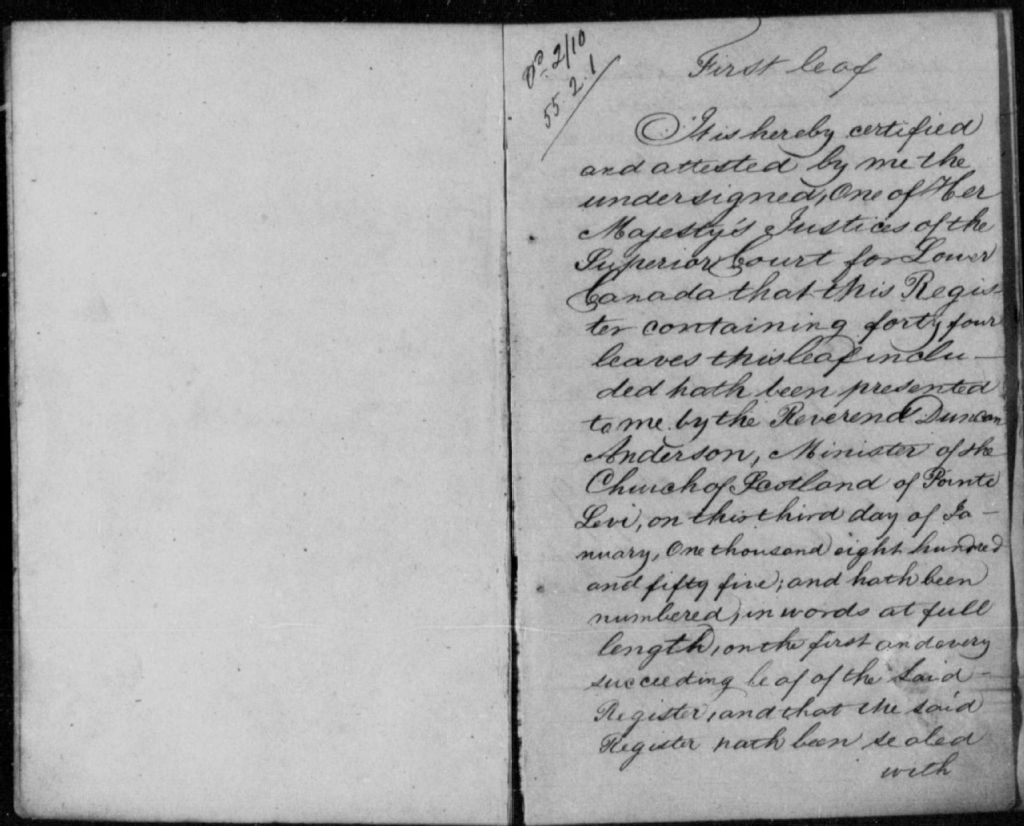 2/10
55.2.1
First leaf
It is hereby certified
and attested by me the
undersigned, One of Her
Majesty's Justices of the
Superior Court for Lower
Canada that this Regis-
ter containing forty four
leaves this leaf inclu-
ded hath been presented
to me by the Reverend Duncan
Anderson, Minister of the
Church of Scotland of Pointe
Levi, on this third day of Ja-
nuary, One thousand eight hundred
and fifty five; and hath been
numbered, in words at full
length, on the first and every
succeeding leaf of the said
Register, and that the said
Register hath been sealed
with